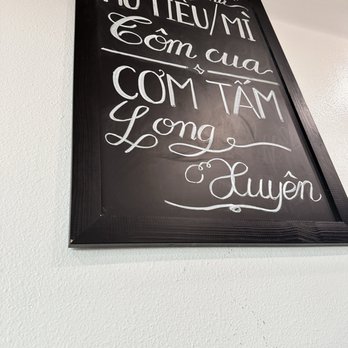 HỦ TIẾU/MÌ
Tôm cua
CƠM TẤM
Long
Xuyên